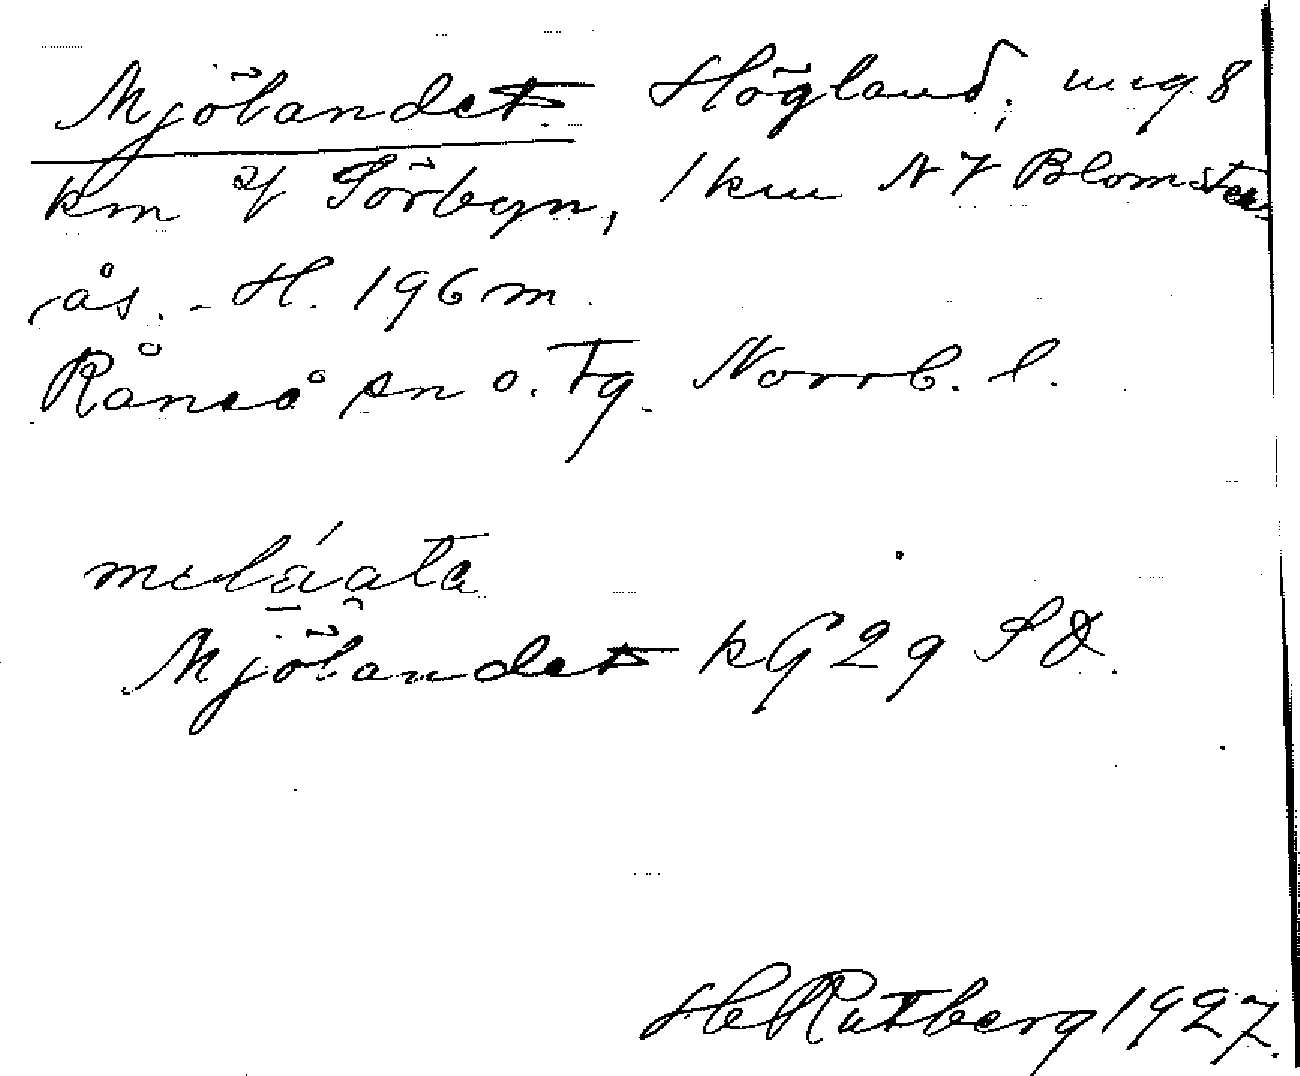 Mjölandet Högland, mg. 8
km Sörbyn, 1 km N f Blomster
ås. - H. 196 m.
Råneå sn o. Tg. Norrb. l.
Mjölandet kG 29 SD.
H Rutberg 1927.